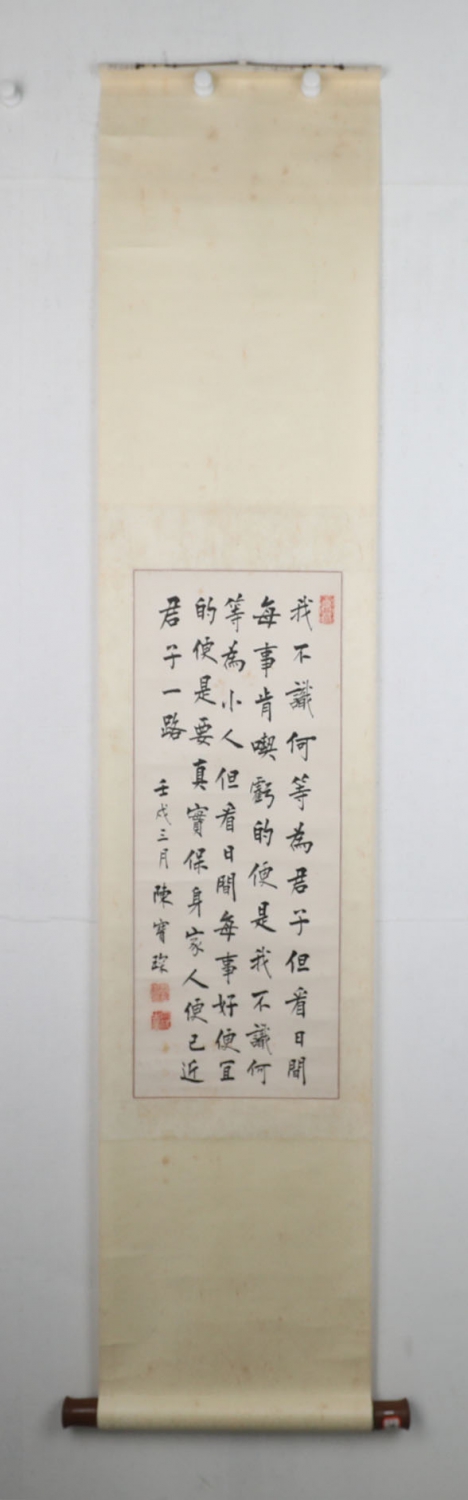 我不識何等為君子但看日間
每事肯喫虧的便是我不識何
等為小人但看日間每事好便宜
的便是要真實保身家人便已近
君子一路
壬戌三月陳寶琛